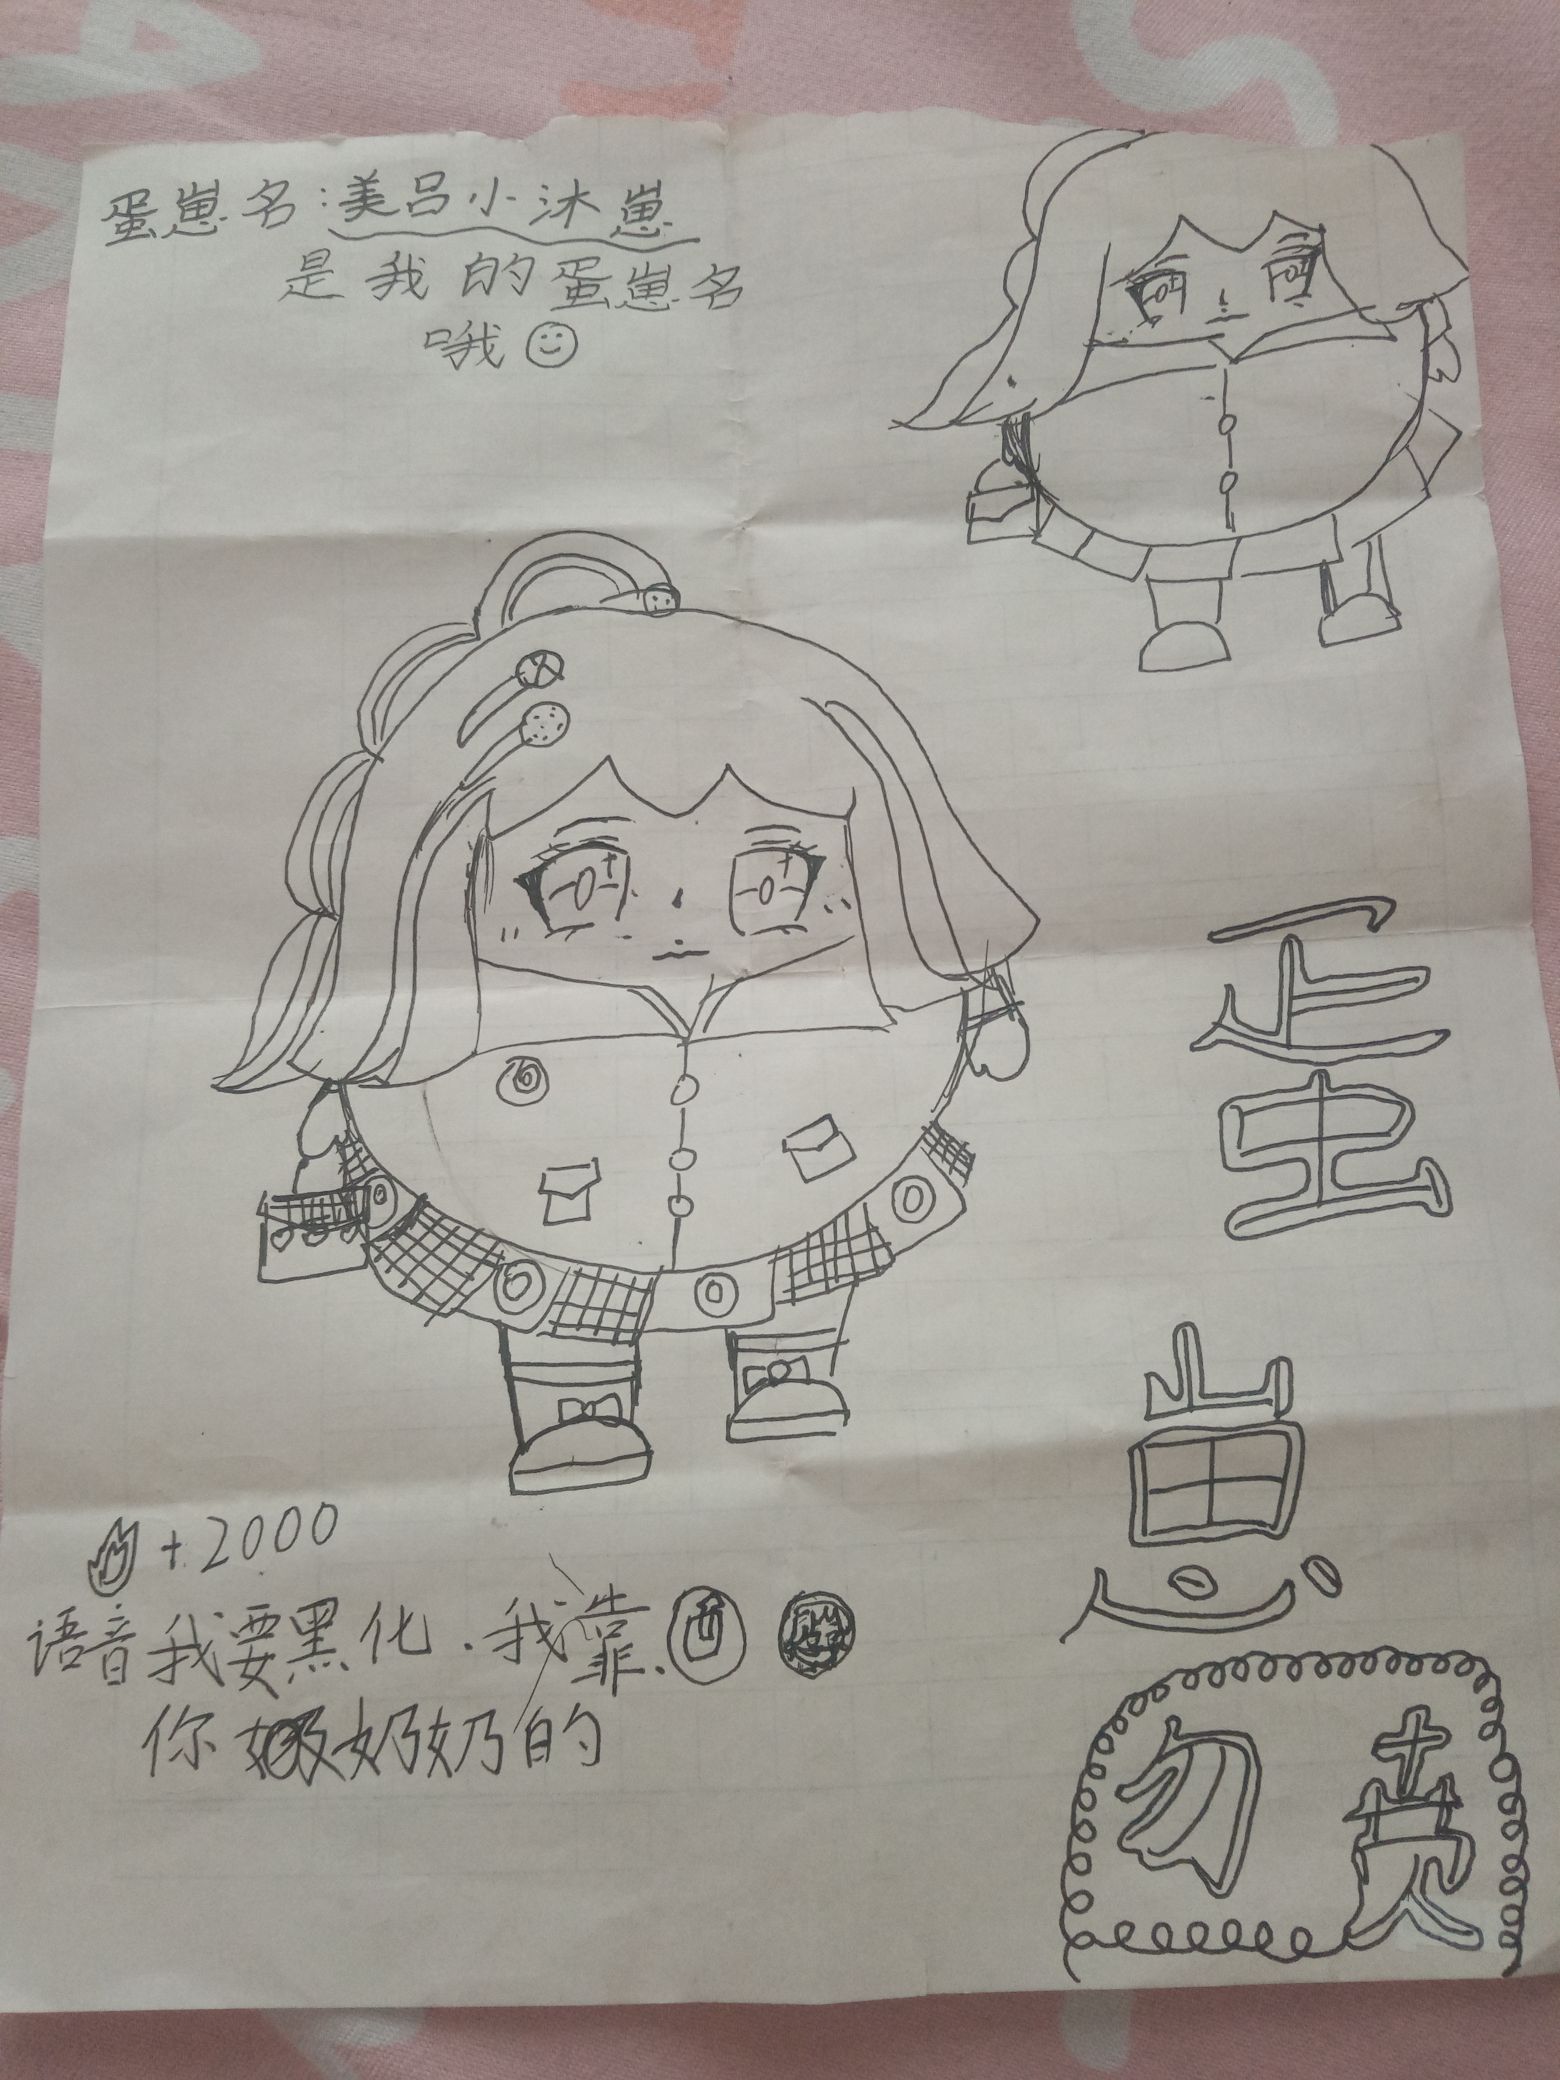 蛋崽名:美吕小沐崽
是我的蛋崽名
哦
蛋
崽
+2000
语音我要黑化.我靠.
你奶奶的